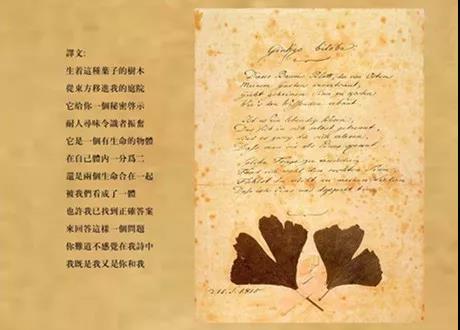 譯文:
生着這種葉子的樹木
從東方移進我的庭院
它給你一個秘密啓示
耐人尋味令識者振奮
它是一個有生命的物體
在自己體內一分爲二
還是兩個生命合在一起
被我們看成了一體
也許我已找到正確答案
來回答這樣一個問題
你難道不感覺在我詩中
我既是我又是你和我
Ginkgo biloba.
Dieses Baums Blatt, der von Osten
Meinem Garten anvertraut,
Giebt geheimen Sinn zu kosten
Wie's den Wissenden erbaut.
Ist es Ein lebendig Wesen,
Das sich in sich selbst getrennt,
Sind es zwey die sich erlesen,
Dass man sie als Eines kennt.
Solche Frage zu erwiedern
Fand ich wohl den rechten Sinn,
Fühlst du nicht an meinen Liedern
Dass ich Eins und doppelt bin.
15. S. 1815